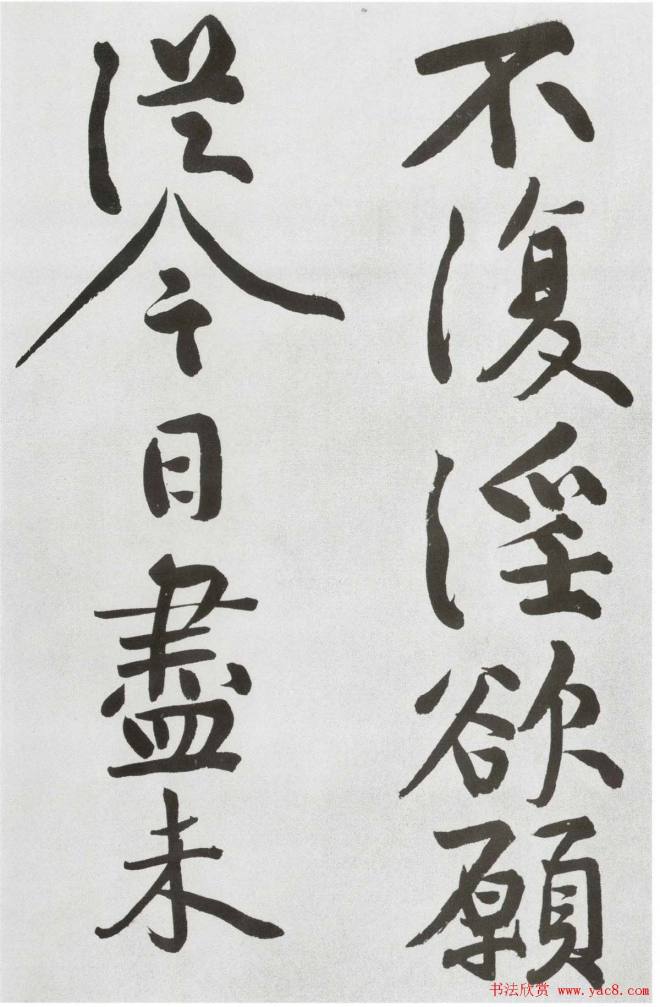 不復淫欲願
從今日盡未
书法欣赏 www.yac8.com